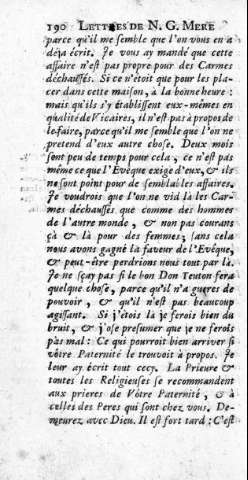 190 LETTRES DE N. G. MERE
parce qu'il me semble que l'on vous en a
déja écrit. Je vous ay mandé que cette
affaire n'est pas propre pour des Carmes
déchaussés. Si ce n'étoit que pour les pla-
cer dans cette maison, à la bonne heure :
mais qu'ils s'y établissent eux-mêmes en
qualité de Vicaires, il n'est pas à propos de
le faire, parce qu'il me semble que l'on ne
pretend d'eux autre chose. Deux mois
sont peu de temps pour cela, ce n'est pas
même ce que l'Evêque exige d'eux, & ils
ne sont point pour de semblables affaires.
Je voudrois que l'on ne vid là les Car-
mes déchaussés que comme des hommes
de l'autre monde, & non pas courans
çà & là pour des femmes; sans cela
nous avons gagné la faveur de l'Evêque,
& peut-être perdrions nous tout par là.
Je ne sçay pas si le bon Don Teuton fera
quelque chose, parce qu'il n'a gueres de
pouvoir, & qu'il n'est pas beaucoup
agissant. Si j'étois là je ferois bien du
bruit, & j'ose presumer que je ne ferois
pas mal : Ce qui pourroit bien arriver si
vôtre Paternité le trouvoit à propos. Je
leur ay écrit tout cecy. La Prieure &
toutes les Religieuses se recommandent
aux prieres de Vôtre Paternité, & à
celles des Peres qui sont chez vous. De-
meurez avec Dieu. Il est fort tard : C'est